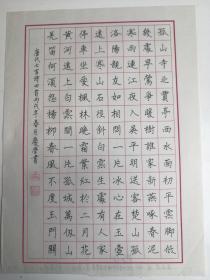 孤山寺北賈亭西水面初平雲脚低
幾處早鶯爭暖樹誰家新燕啄春泥
寒雨連江夜入吳平明送客楚山孤
洛陽親友如相問一片冰心在玉壺
遠上寒山石徑斜白雲生處有人家
停車坐愛楓林晚霜葉紅於二月花
黃河遠上白雲間一片孤城萬仞山
羌笛何須怨楊柳春風不度玉門關
唐代七言詩四首丙戌年春月慶書